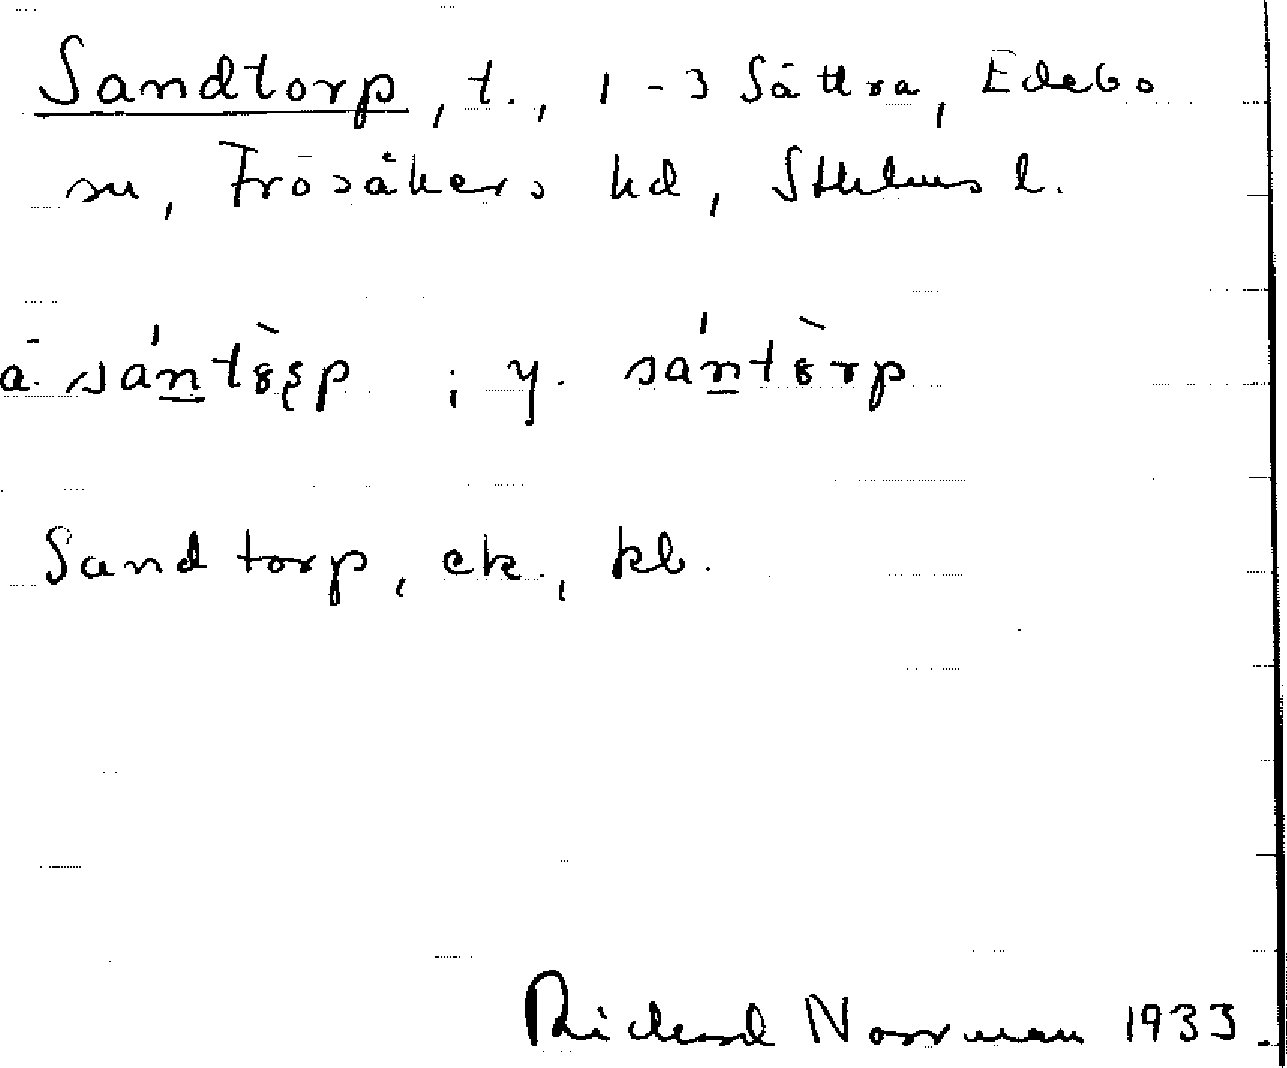 Sandtorp, t., 1-3 Sättra, Edebo
sn, Frösåkers hd, Sthlms l.
ä. ; y.
Sandtorp, ek., kb.
Richard Norrman 1933.